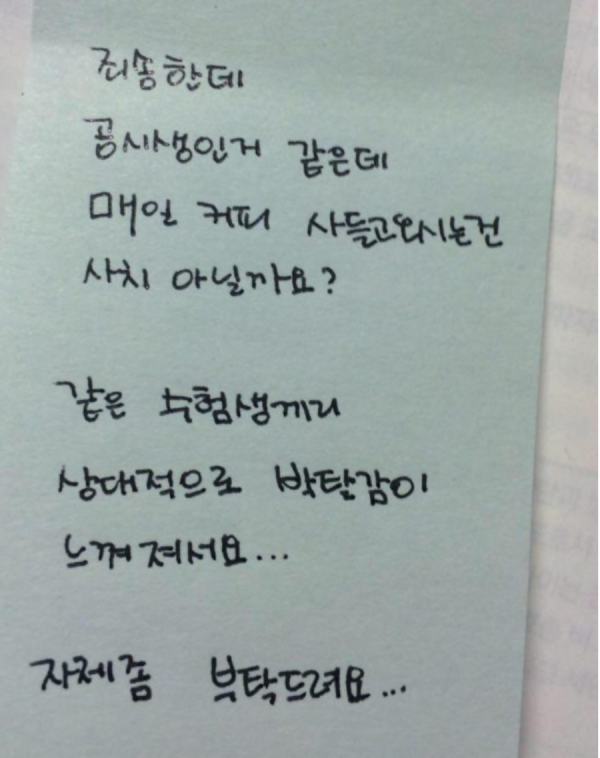 죄송한데
공시생인거 같은데
매일 커피 사들고와시는건
사치 아닐까요?
같은 수험생끼리
상대적으로 박탈감이
느껴져서요...
자제좀 부탁드려요...